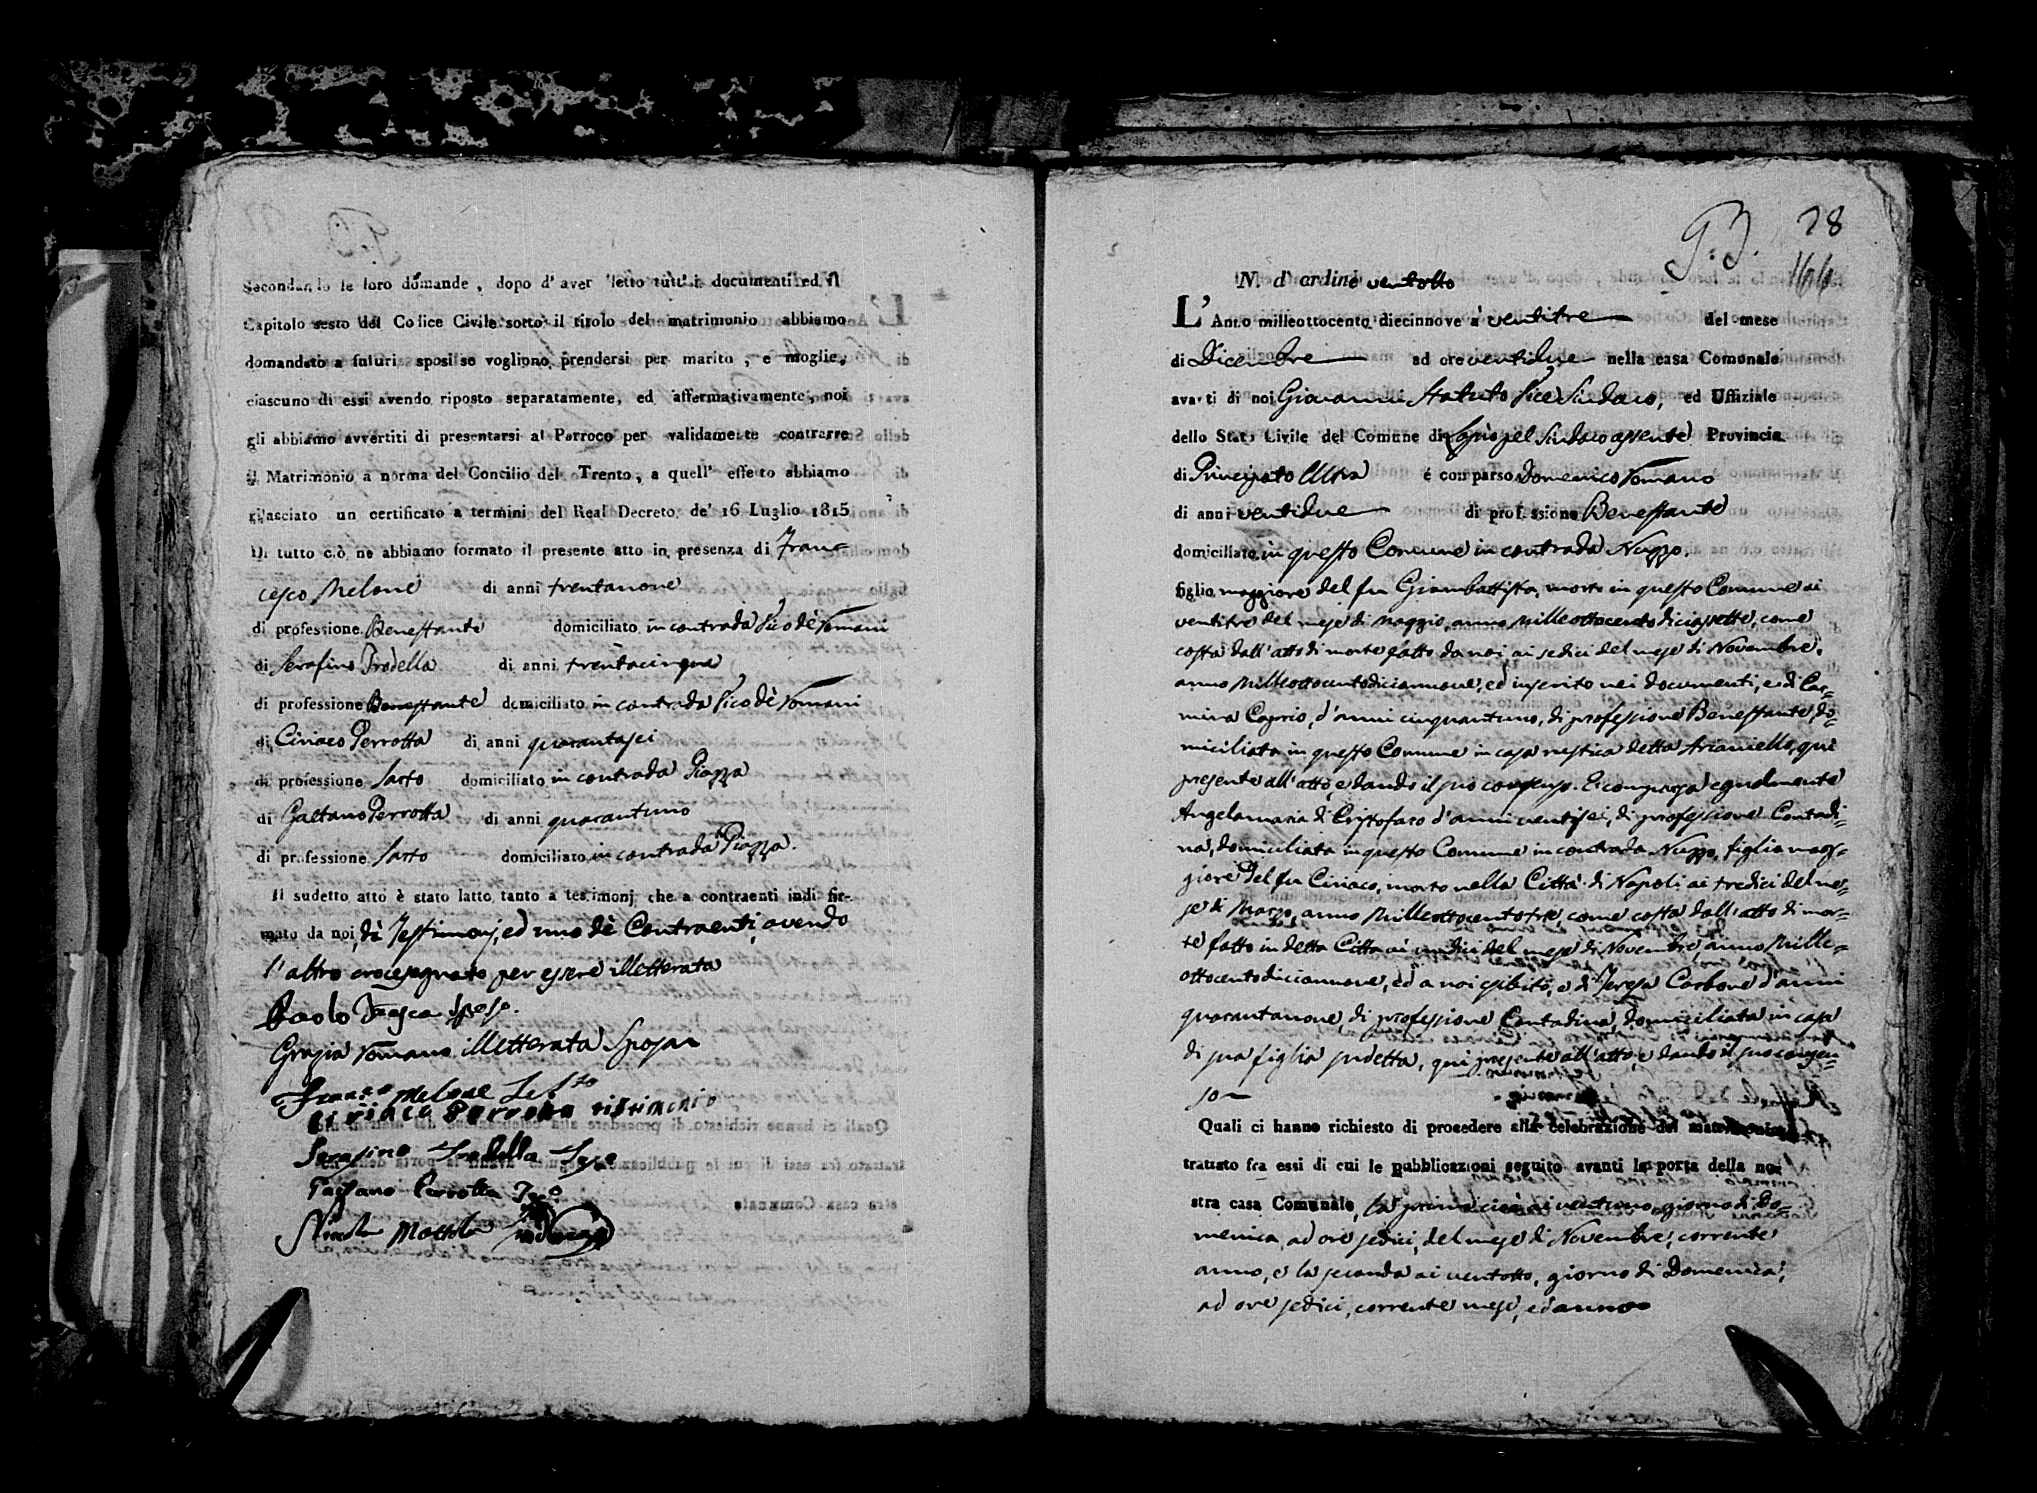 Secondando le loro domande, dopo d'aver letto tutt'i documenti ed il
Capitolo sesto del Codice Civile sotto il titolo del matrimonio abbiamo
domandato a futuri sposi se vogliono prendersi per marito, e moglie,
ciascuno di essi avendo riposto separatamente, ed affermativamente, noi
gli abbiamo avvertiti di presentarsi al Parroco per validamente contrarre
il Matrimonio a norma del Concilio del Trento, a quell' effetto abbiamo
rilasciato un certificato a termini del Real Decreto de' 16 Luglio 1815
Di tutto ciò ne abbiamo formato il presente atto in presenza di Fran-
cesco Melone di anni trentanove
di professione Benestante domiciliato in contrada Vico dè Romani
di Serafino Fredella di anni trentacinque
di professione Benestante domiciliato in contrada Vico dè Romani
di Ciriaco Perrotta di anni quarantasei
di professione Sarto domiciliato in contrada Piazza
di Gaetano Perrotta di anni quarantuno
di professione Sarto domiciliato in contrada Piazza.
Il sudetto atto è stato latto tanto a testimonj che a contraenti indi fir-
mato da noi, dè Testimonj, ed uno dè Contraenti, avendo
l'altro crocesegnato per essere illetterata
Paolo Frasca Sposo.
Grazia Romano illetterata Sposa
Melone
Ciriaco Perrotta testimonio
Serafino Fredella
Gaetano Perrotta
Nicola Mottola Sindaco
28
166
N. d' ordine ventotto
L' Anno milleottocento diecinnove a' ventitre del mese
di Dicembre ad ore ventidue nella casa Comonale
avanti di noi Giovanni Statuto Vice Sindaco, ed Uffiziale
dello Stato Civile del Comune di Lapio pel Sindaco assente Provincia
di Principato Ultra é comparso Domenico Romano
di anni ventidue di professione Benestante
domiciliato in questo Comune in contrada Nuzzo,
figlio maggiore del fu Giambattista, morto in questo Comune ai
ventitre del mese di Maggio, anno Milleottocentodiciassette, come
costa dall'atto di morte fatto da noi ai sedici del mese di Novembre,
anno Milleottocentodiciannove, ed inserito nei documenti, e di Car-
mina Caprio, d'anni cinquantuno, di professione Benestante, do-
miciliata in questo Comune in casa rustica detta Arianiello, qui
presente all'atto, e dando il suo consenso. E comparsa egualmente
Angelamaria di Cristofaro d'anni ventisei, di professione Contadi-
na, domiciliata in questo Comune in contrada Nuzzo, figlia mag-
giore del fu Ciriaco, morto nella Città di Napoli ai tredici del me-
se di Marzo, anno Milleottocentotre, come costa dall'atto di mor-
te fatto in detta Città ai undici del mese di Novembre, anno Mille-
ottocentodiciannove, ed a noi esibito, e di Teresa Carbone d'anni
quarantanove, di professione Contadina, domiciliata in casa
di sua figlia sudetta, qui presente all'atto, e dando il suo consen-
so
Quali ci hanno richiesto di procedere alla celebrazione del matrimonio
trattato fra essi di cui le pubblicazioni seguito avanti la porta della no
stra casa Comunale, la prima cioè ai ventuno, giorno di Do-
menica, ad ore sedici, del mese di Novembre, corrente
anno, e la seconda ai ventotto, giorno di Domenica,
ad ore sedici, corrente mese, ed anno